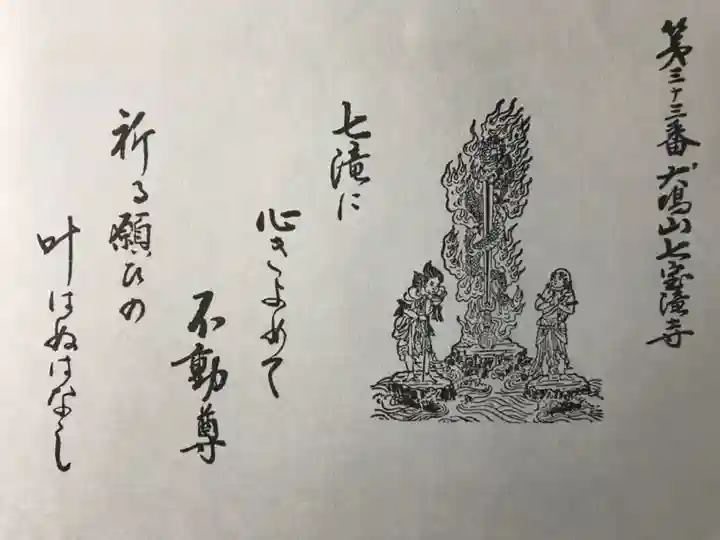 第三十三番 犬鳴山七宝瀧寺
七滝に
心きよめて
不動尊
祈る願ひの
叶はぬはなし